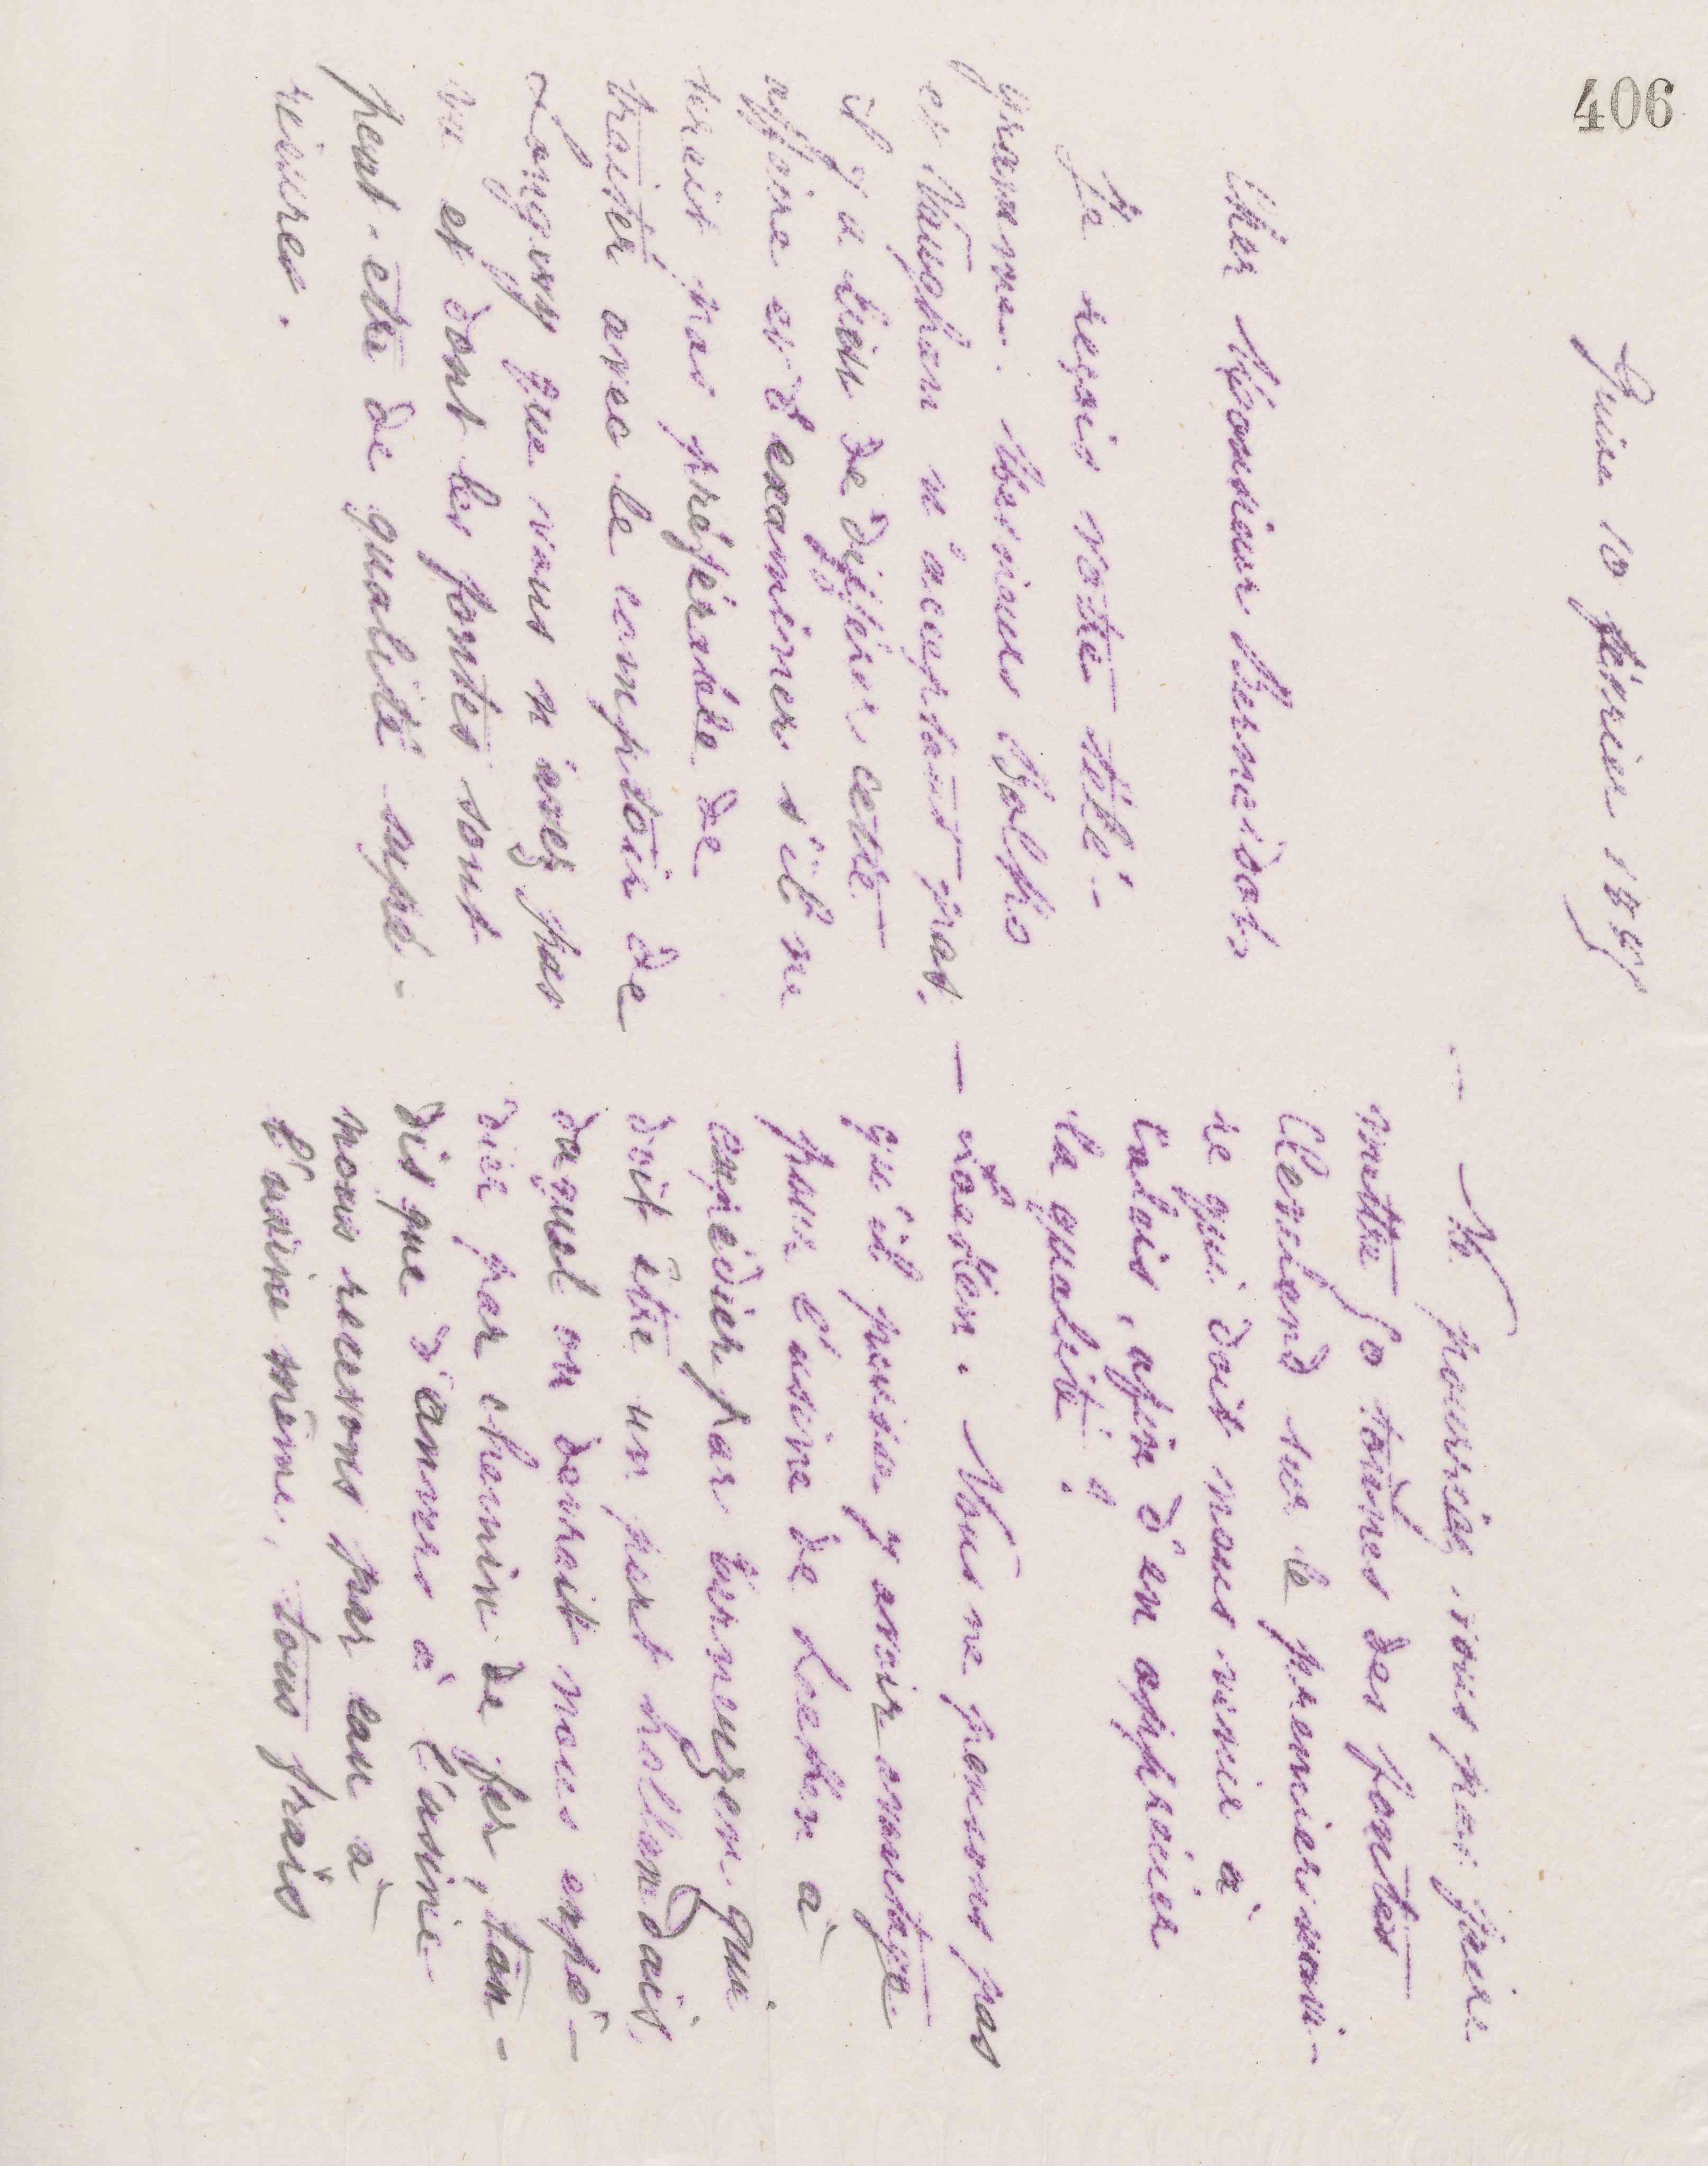 406
Guise 10 février 18
Cher Monsieur Bernardot,
Je reçois votre télé-
gramme. Messieurs Bolko
et Vaughan n'acceptant pas,
il y a lieu de différer cette
affaire et d'examiner s'il ne
serait pas préférable de
traiter avec le comptoir de
Longwy que vous n'avez pas
vu et dont les fontes sont
peut-être de qualité supé-
rieures.
— Ne pourriez vous pas faire
mettre 50 tonnes des fontes
Cleveland sur le premier navi-
re qui doit nous venir à
Calais, afin d'en apprécier
la qualité ?
— Vous ne pensons pas
qu'il puisse y avoir avantage
pour l'usine de Laeken à
expédier par Terneuzen qui
doit être un port hollandais,
duquel on devrait nous expé-
dier par chemin de fer, tan-
dis que d'Anvers à l'usine
nous recevons par eau à
l'usine même, tous frais